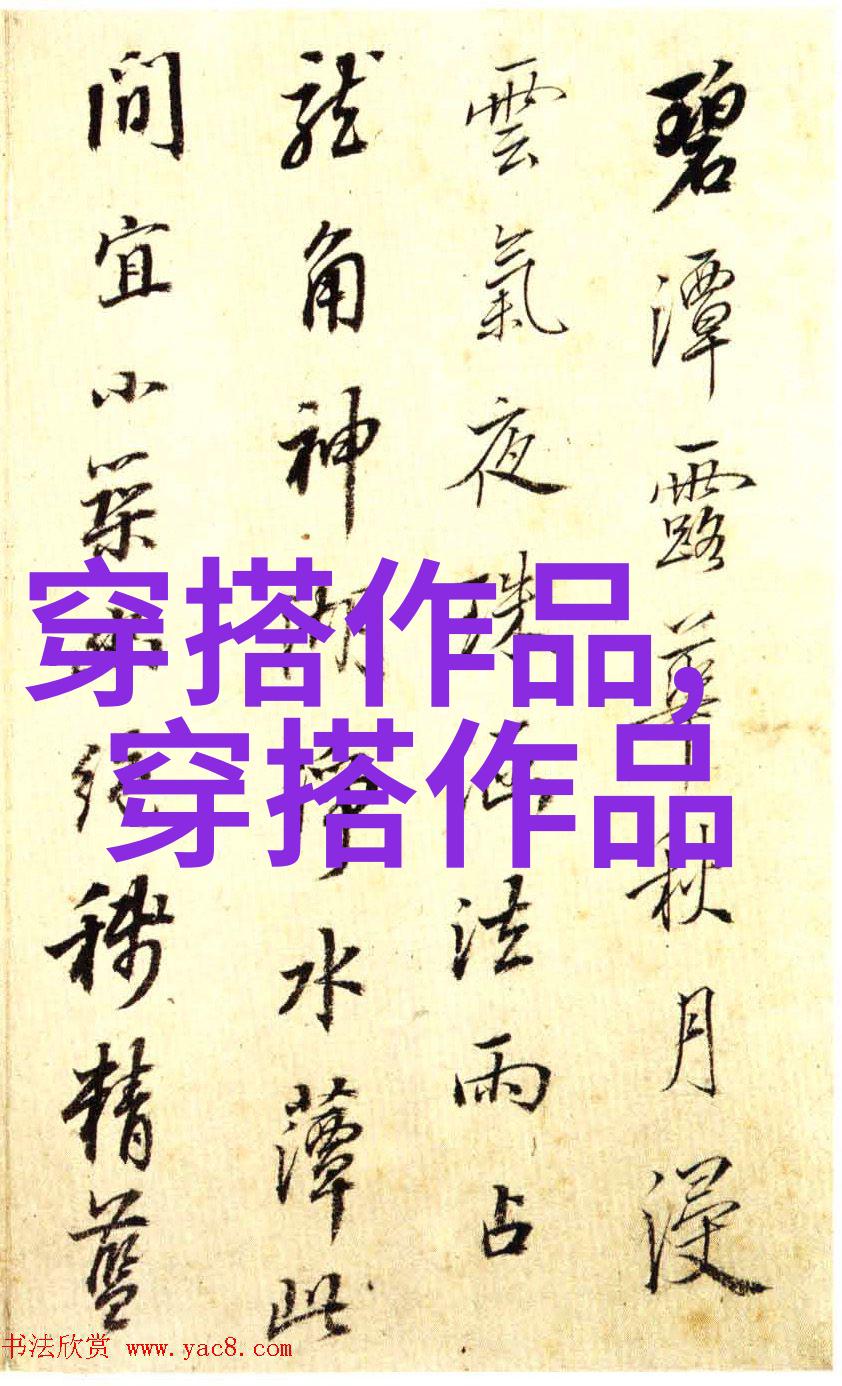 碧潭露華秋月浸
雲氣夜珠函法雨占
龍角神湖水藫此
間宜小築稱精藍
穿搭作品,
穿搭作品
书法欣赏 www.yac8.com